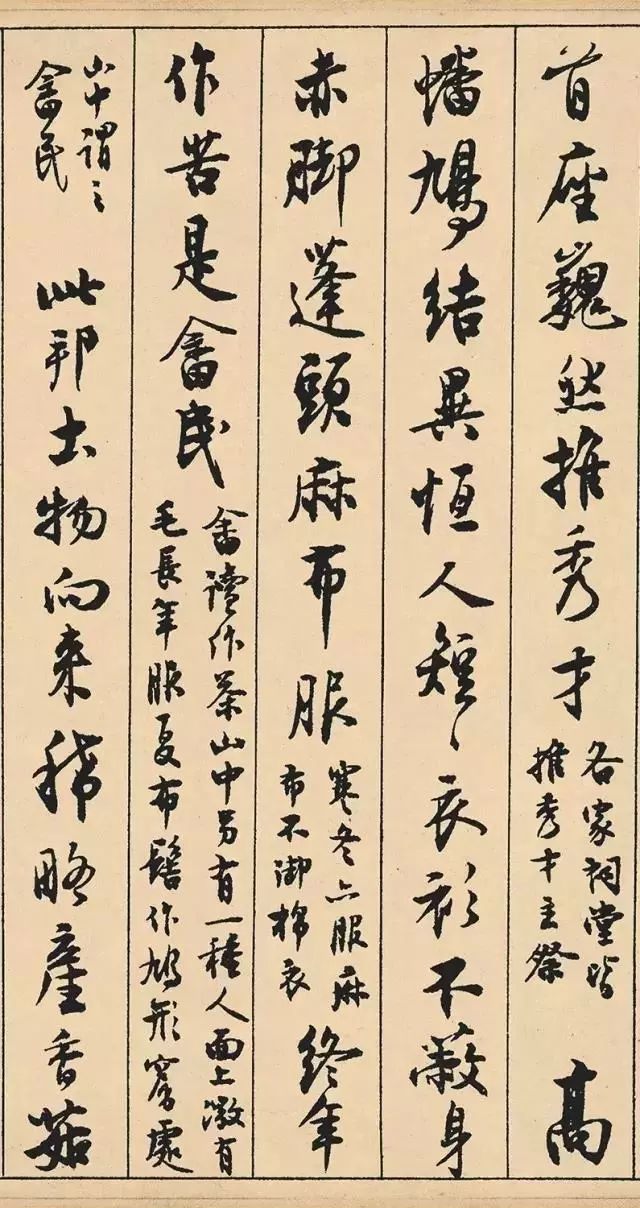 首座巍然推秀才
各家祠堂皆
推秀才主祭
高
蟠鳩結異恒人短〻衣衫不蔽身
赤脚蓬頭麻布服
寒冬亦服麻
布不御棉衣
終年
作苦是畬民
畬讀作茶山中另有一種人面上微有
毛長年服夏布髻作鳩形窮處
山中謂之
畬民
此邦土物向来稀略產香菇